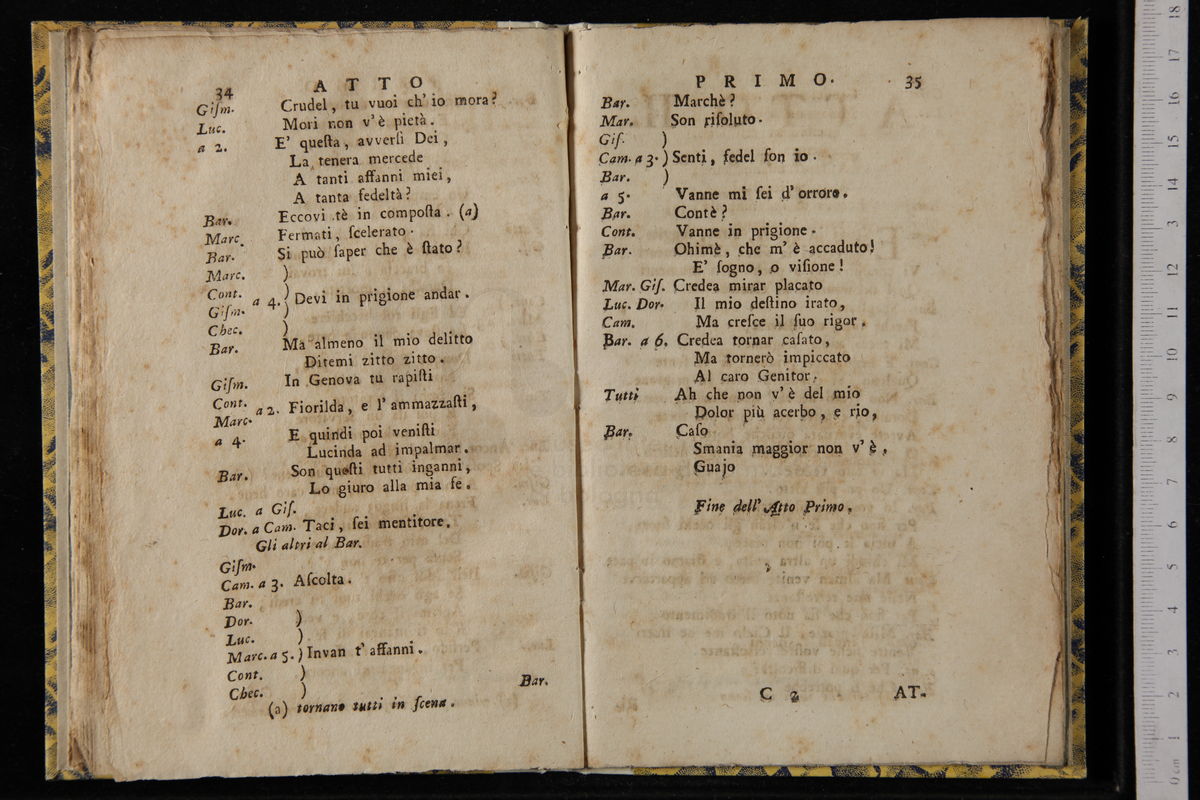 34
A T T O
Giſm. Crudel, tu vuoi ch' io mora?
Luc. Mori non v'è pietà.
a 2. E' queſta, avverſi Dei,
La tenera mercede
A tanti affanni miei,
A tanta fedeltà?
Bar. Eccovi tè in compoſta. (a)
Marc. Fermati, ſcelerato.
Bar. Si può ſaper che è ſtato?
Marc. )
Cont. )
a 4. ) Devi in prigione andar.
Giſm. )
Chec. )
Bar. Ma almeno il mio delitto
Ditemi zitto zitto.
Giſm. In Genova tu rapiſti
Cont. a 2. Fiorilda, e l' ammazzaſti,
Marc.
a 4. E quindi poi veniſti
Lucinda ad impalmar.
Bar. Son queſti tutti inganni,
Lo giuro alla mia fe.
Luc. a Giſ.
Dor. a Cam. Taci, ſei mentitore.
Gli altri al Bar.
Giſm.
Cam. a 3. Aſcolta.
Bar.
Dor. )
Luc. )
Marc. a 5. ) Invan t' affanni.
Cont. )
Chec. )
Bar.
(a) tornano tutti in ſcena.
P R I M O. 35
Bar. Marchè?
Mar. Son riſoluto.
Giſ. )
Cam. a 3. ) Senti, fedel ſon io.
Bar. )
a 5. Vanne mi ſei d' orrore.
Bar. Contè?
Cont. Vanne in prigione.
Bar. Ohimè, che m' è accaduto!
E' ſogno, o viſione!
Mar. Giſ. Credea mirar placato
Luc. Dor. Il mio deſtino irato,
Cam. Ma creſce il ſuo rigor.
Bar. a 6. Credea tornar caſato,
Ma tornerò impiccato
Al caro Genitor.
Tutti Ah che non v' è del mio
Dolor più acerbo, e rio,
Bar. Caſo
Smania maggior non v' è,
Guajo
Fine dell' Atto Primo.
C 2 AT-